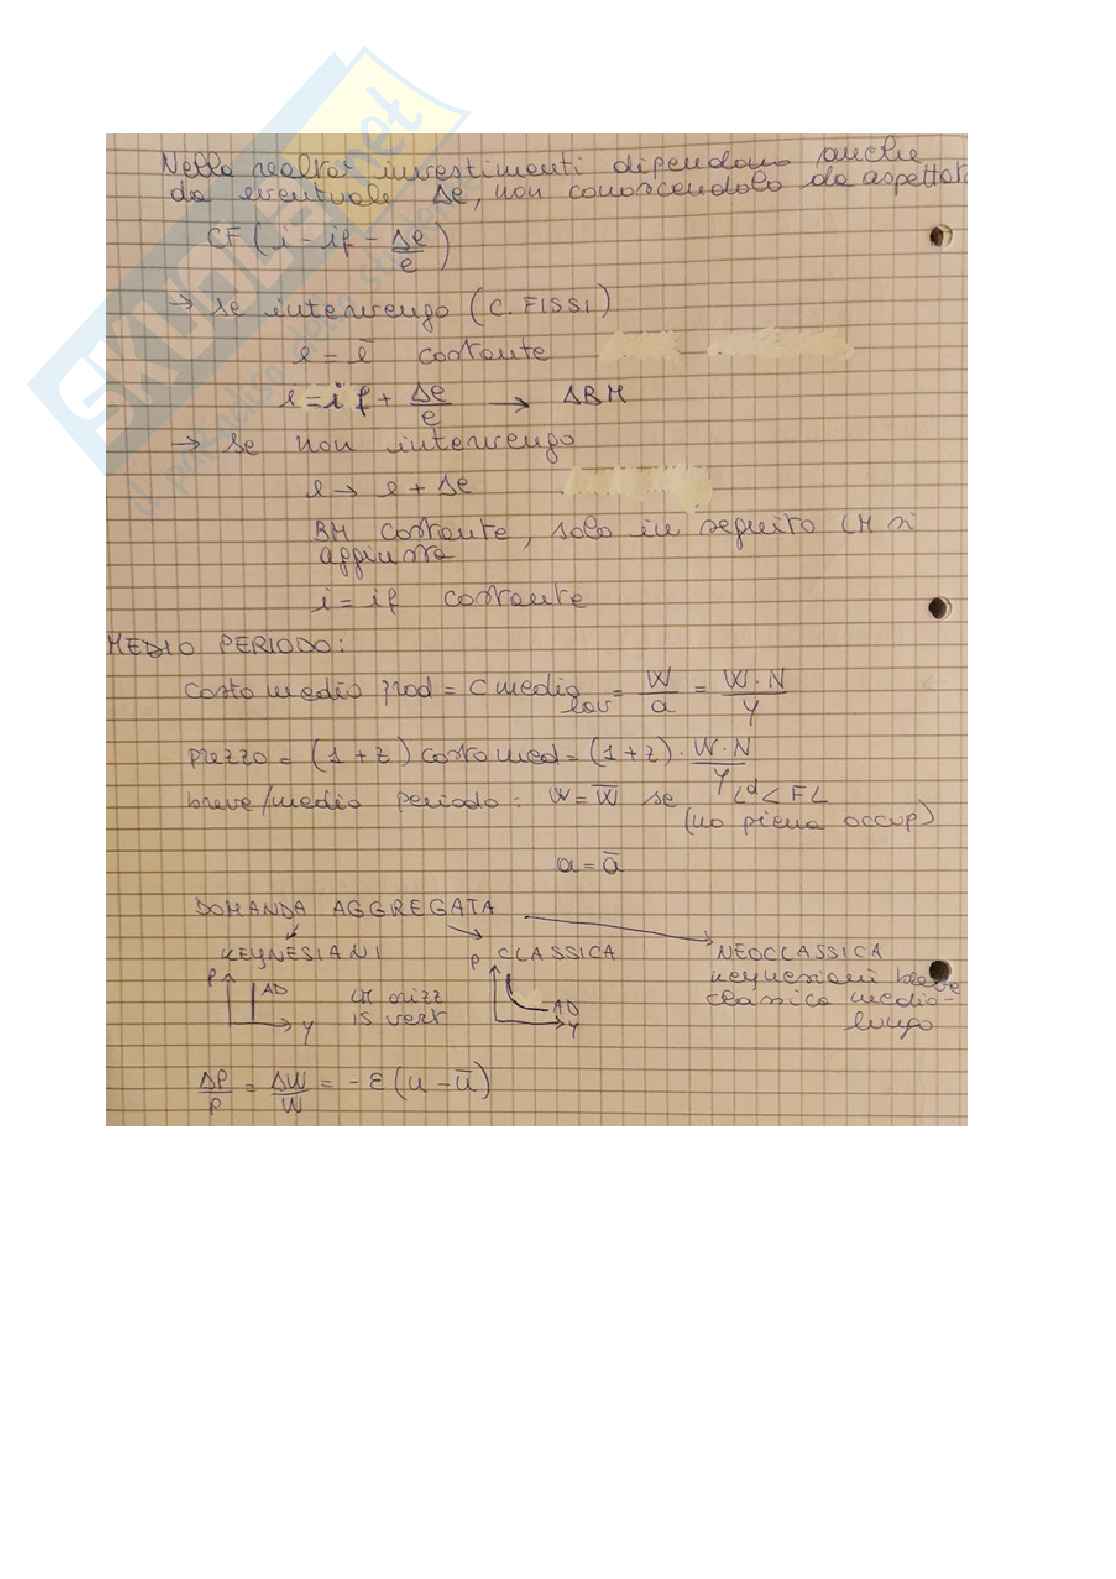 Nella realtà investimenti dipendono anche
da eventuale Δe, non conoscendolo da aspettat
CF(i - if - Δe/e)
→ se intervengo (C. FISSI)
e = ē costante
i = if + Δe/e → ΔBM
→ se non intervengo
e → e + Δe
BM costante, solo in seguito LM si
aggiusta
i = if costante
MEDIO PERIODO:
costo medio prod = C medio lav = W/a = W·N/Y
prezzo = (1+z) costo med = (1+z)·W·N/Y
breve/medio periodo: W = W̄ se Ld < FL
(no piena occup)
a = ā
DOMANDA AGGREGATA
KEYNESIANI CLASSICA NEOCLASSICA
P AD Y
LM orizz
IS vert
P AD Y
keynesiani breve
classica medio-
lungo
ΔP/P = ΔW/W = -ε(u - ū)
SKUOLA.net
il paradiso dello studente